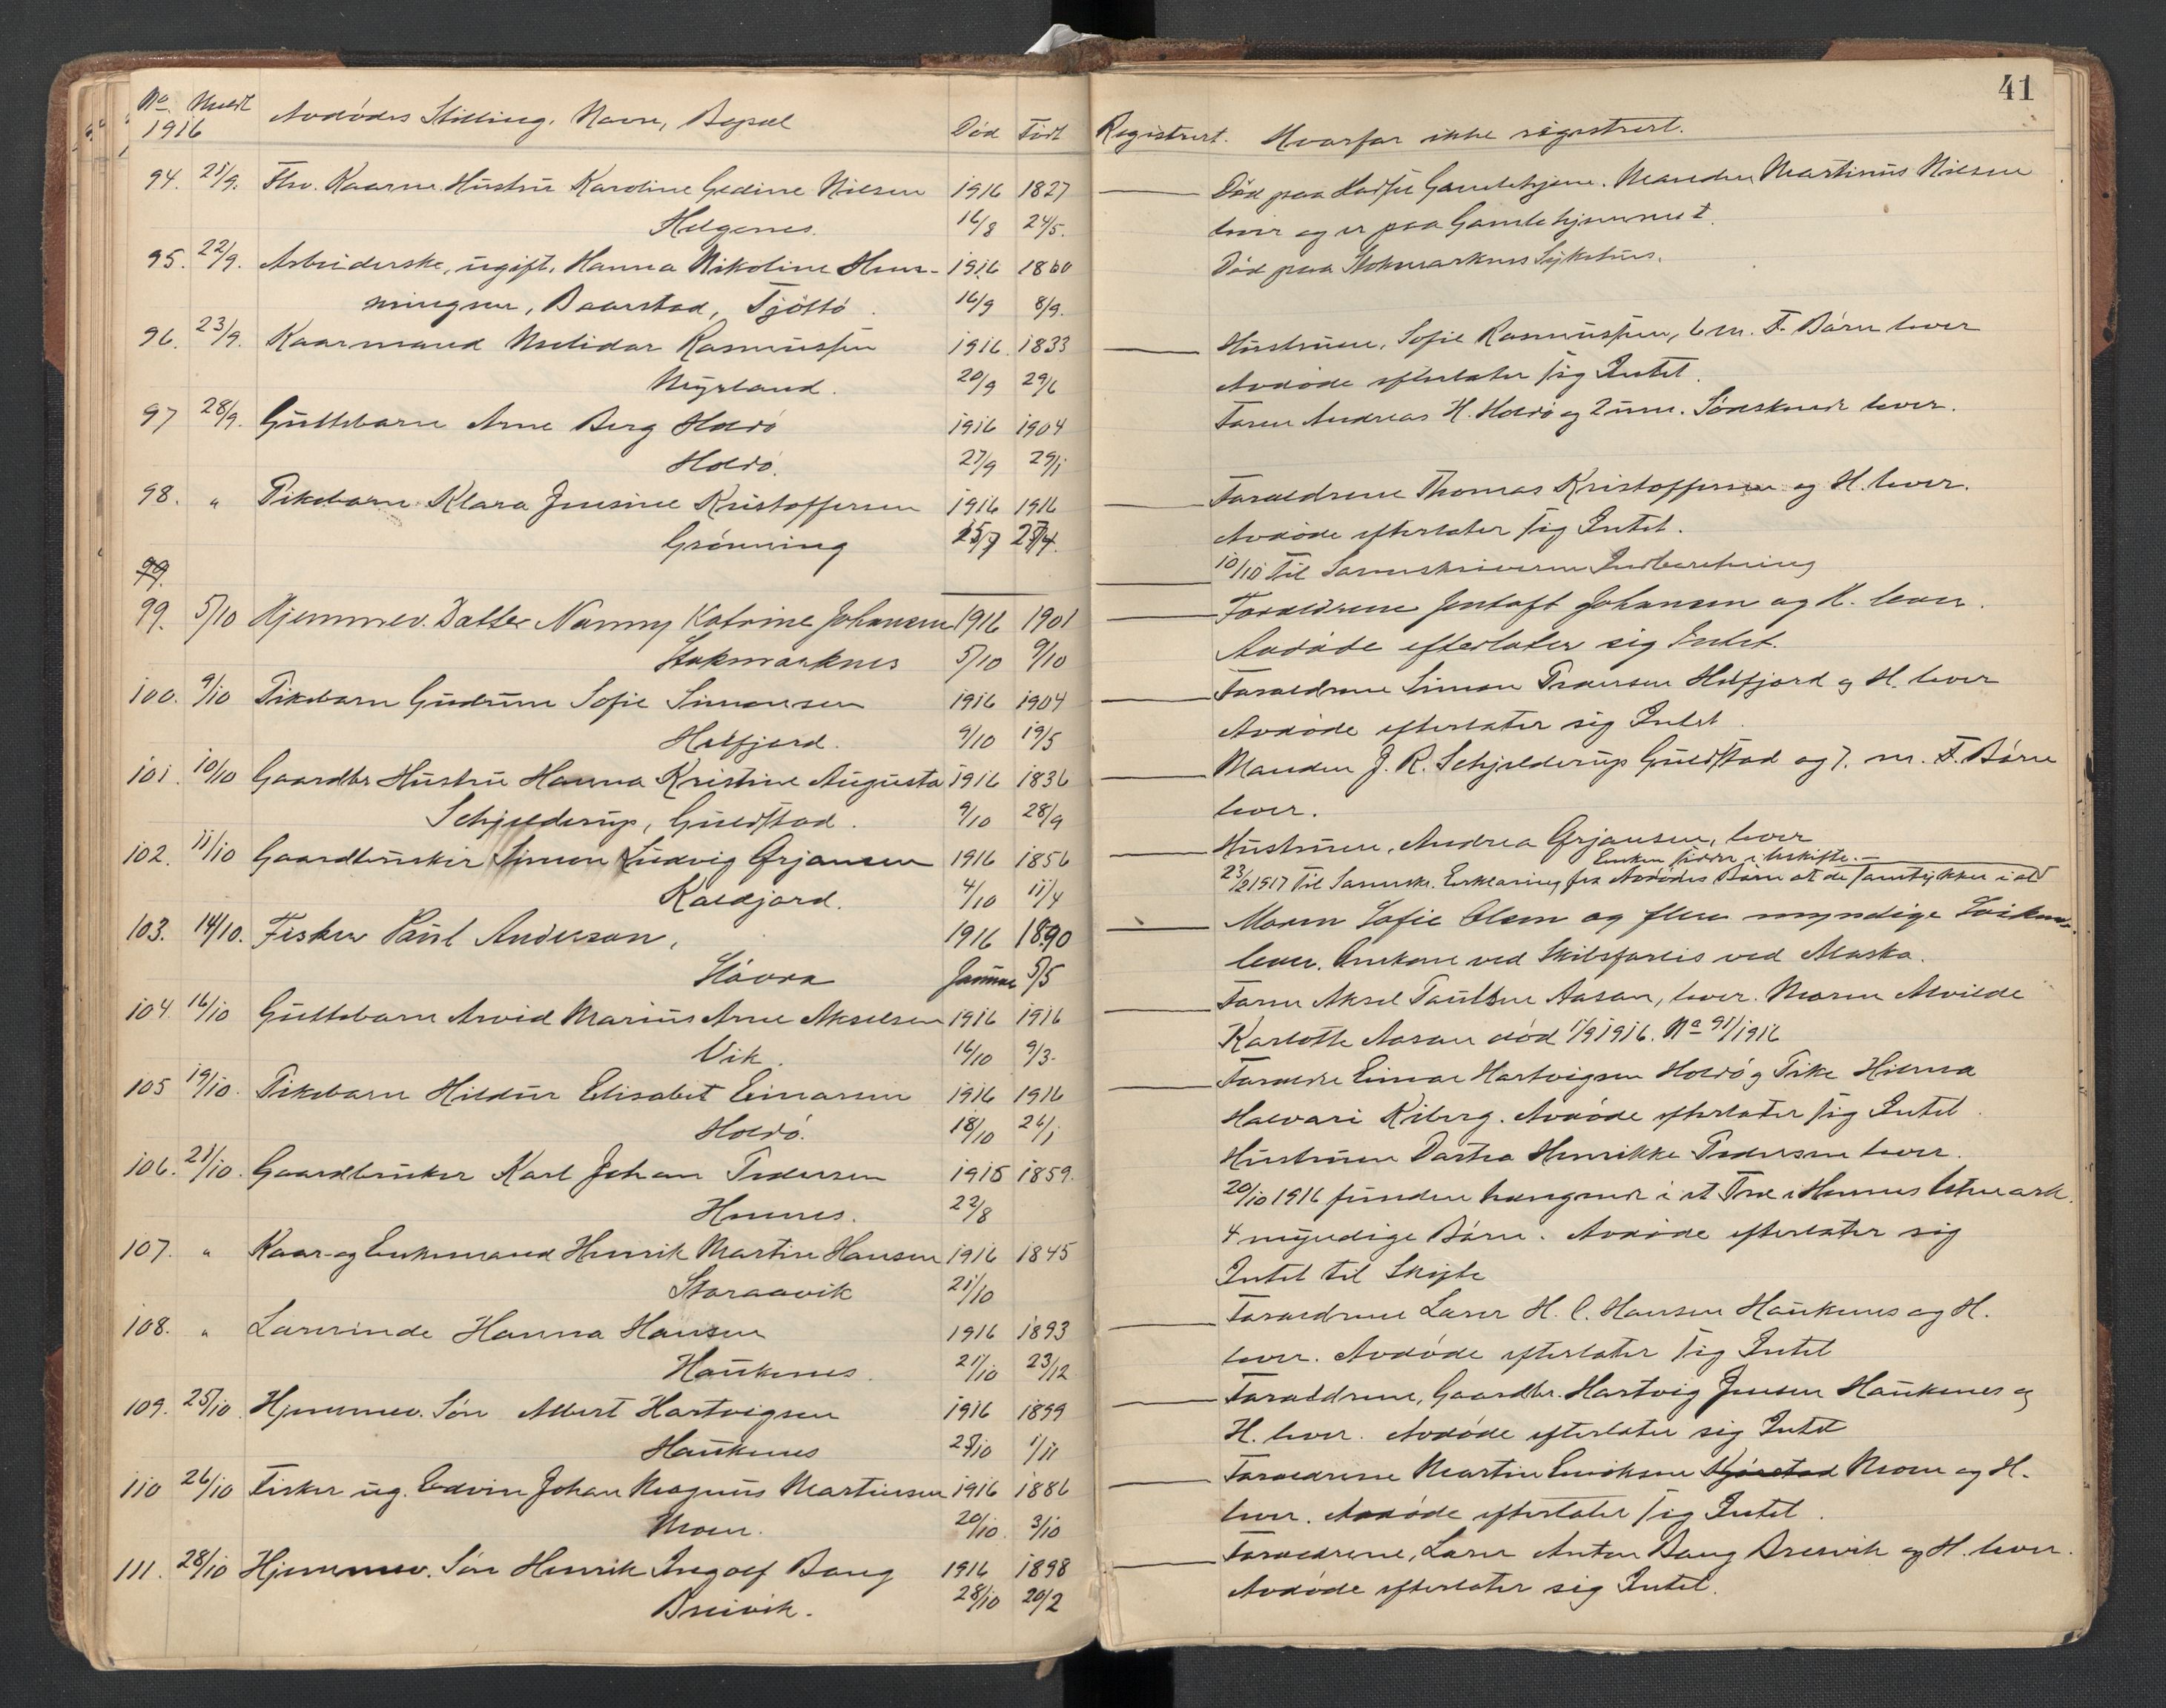 41
No Meldt Avdødes Stilling, Navn, Bopæl Død Født Registrert. Hvorfor ikke registrert.
1916
94. 21/9. Kaarm. Hustru Karoline Gedine Nilsen 1916 1827 Død paa Hadsel Gamlehjem. Manden Martinus Nilsen
Helgenes. 16/8 24/5. lever og er paa Gamlehjemmet.
95. 22/9. Arbeiderske, ugift, Hanna Nikoline Hen- 1916 1860 Død paa Stokmarknes Sykehus.
ningsen, Baarstad, Tjøttø. 16/9 8/9.
96. 23/9. Kaarmand Meldidar Rasmussen 1916 1833 Hustruen, Sofie Rasmussen, 6 m. F. Børn lever
Myrland. 20/9 29/6 Avdøde efterlater sig Intet.
97 28/9. Guttebarn Arne Berg Holdø 1916 1904 Faren Andreas H. Holdø og 2 um. Søskend lever.
Holdø. 27/9 29/1
98. " Pikebarn Klara Jensine Kristoffersen 1916 1916 Forældrene Thomas Kristoffersen og H. lever.
Grønning 25/7 27/4. Avdøde efterlater sig Intet.
99. 10/10 til Sorenskriveren Indberetning
99. 5/10 Hjemmev. Datter Nanny Katrine Johansen 1916 1901 Forældrene Jentoft Johansen og H. lever.
Stokmarknes 5/10 9/10 Avdøde efterlater sig Intet.
100. 9/10 Pikebarn Gudrun Sofie Simonsen 1916 1904 Forældrene Simon Pedersen Melfjord og H. lever
Melfjord. 9/10 19/5 Avdøde efterlater sig Intet.
101. 10/10 Gaardbr. Hustru Hanna Kristine Augusta 1916 1836 Manden J. R. Schjelderup Guldstad og 7. m. F. Børn
Schjelderup, Guldstad. 9/10 28/9 lever.
102. 11/10 Gaardbruker Simon Ludvig Ørjansen 1916 1856 Hustruen, Andrea Ørjansen, lever
Enken sidder i uskifte.
Kaldjord. 4/10 11/4 23/2 1917 til Sorenskr. Erklæring fra Avdødes Børn at de samtykker i at
103. 14/10. Fisker Paul Anderson, 1916 1890 Moren Sofie Olsen og flere myndige Søsken
Støvra Januar 5/5 lever. Omkom ved Skibsforlis ved Alaska.
104. 16/10 Guttebarn Arvid Marius Arne Akselsen 1916 1916 Faren Aksel Paulsen Aasan, lever. Moren Alvilde
Vik. 16/10 9/3. Karlotte Aasan død 1/9 1916. No 91/1916
105 19/10. Pikebarn Hildur Elisabet Einarsen 1916 1916 Forældre Einar Hartvigsen Holdø og Pike Hilma
Holdø. 18/10 26/1 Halvari Kiberg. Avdøde efterlater sig Intet.
106. 21/10. Gaardbruker Karl Johan Pedersen 1915 1859. Hustruen Dorthea Henrikke Pedersen lever.
Hennes. 22/8 20/10 1916 funden hængende i et Træ i Hennes Utmark.
107. " Kaar- og Enkemand Henrik Martin Hansen 1916 1845 4 myndige Børn. Avdøde efterlater sig
Storaavik 21/10 Intet til Skifte
108. " Lærerinde Hanna Hansen 1916 1893 Forældrene Lærer H. C. Hansen Haukenes og H.
Haukenes. 21/10 23/12 lever. Avdøde efterlater sig Intet
109. 25/10. Hjemmev. Søn Albert Hartvigsen 1916 1899 Forældrene, Gaardbr. Hartvig Jensen Haukenes og
Haukenes 25/10 1/11 H. lever. Avdøde efterlater sig Intet
110 26/10 Fisker ug. Edvin Johan Magnus Martinsen 1916 1886 Forældrene Martin Eriksen Kjørstad Moen og H.
Moen. 20/10. 3/10 lever. Avdøde efterlater sig Intet.
111. 28/10 Hjemmev. Søn Henrik Ingolf Bang 1916 1898 Forældrene, Lærer Anton Bang Breivik og H. lever.
Breivik. 28/10 20/2 Avdøde efterlater sig Intet.